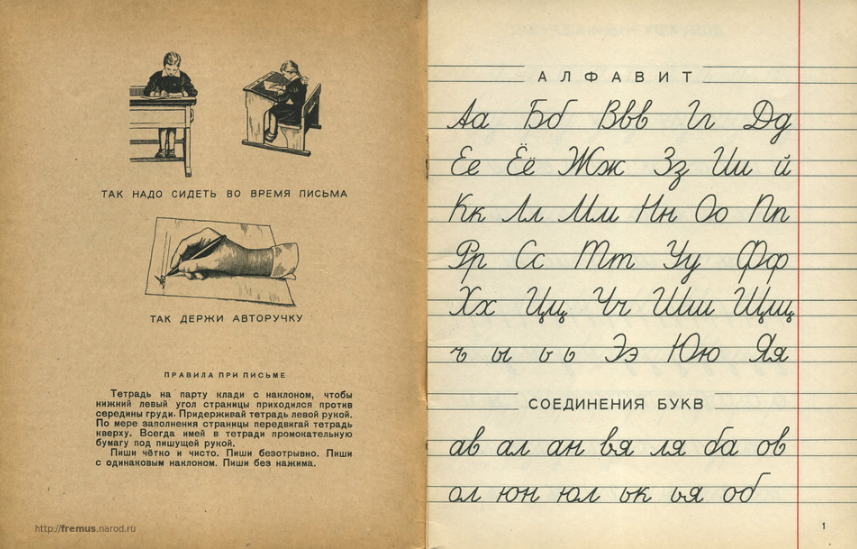 ТАК НАДО СИДЕТЬ ВО ВРЕМЯ ПИСЬМА
ТАК ДЕРЖИ АВТОРУЧКУ
ПРАВИЛА ПРИ ПИСЬМЕ
Тетрадь на парту клади с наклоном, чтобы
нижний левый угол страницы приходился против
середины груди. Придерживай тетрадь левой рукой.
По мере заполнения страницы передвигай тетрадь
кверху. Всегда имей в тетради промокательную
бумагу под пишущей рукой.
Пиши чётко и чисто. Пиши безотрывно. Пиши
с одинаковым наклоном. Пиши без нажима.
http://fremus.narod.ru
АЛФАВИТ
Аа Бб Ввв Гг Дд
Ее Ёё Жж Зз Ии й
Кк Лл Мм Нн Оо Пп
Рр Сс Тт Уу Фф
Хх Цц Чч Шш Щщ
ъ ы ь ь Ээ Юю Яя
СОЕДИНЕНИЯ БУКВ
ав ал ан вя ля ба ов
ол юн юл ьк ья об
1